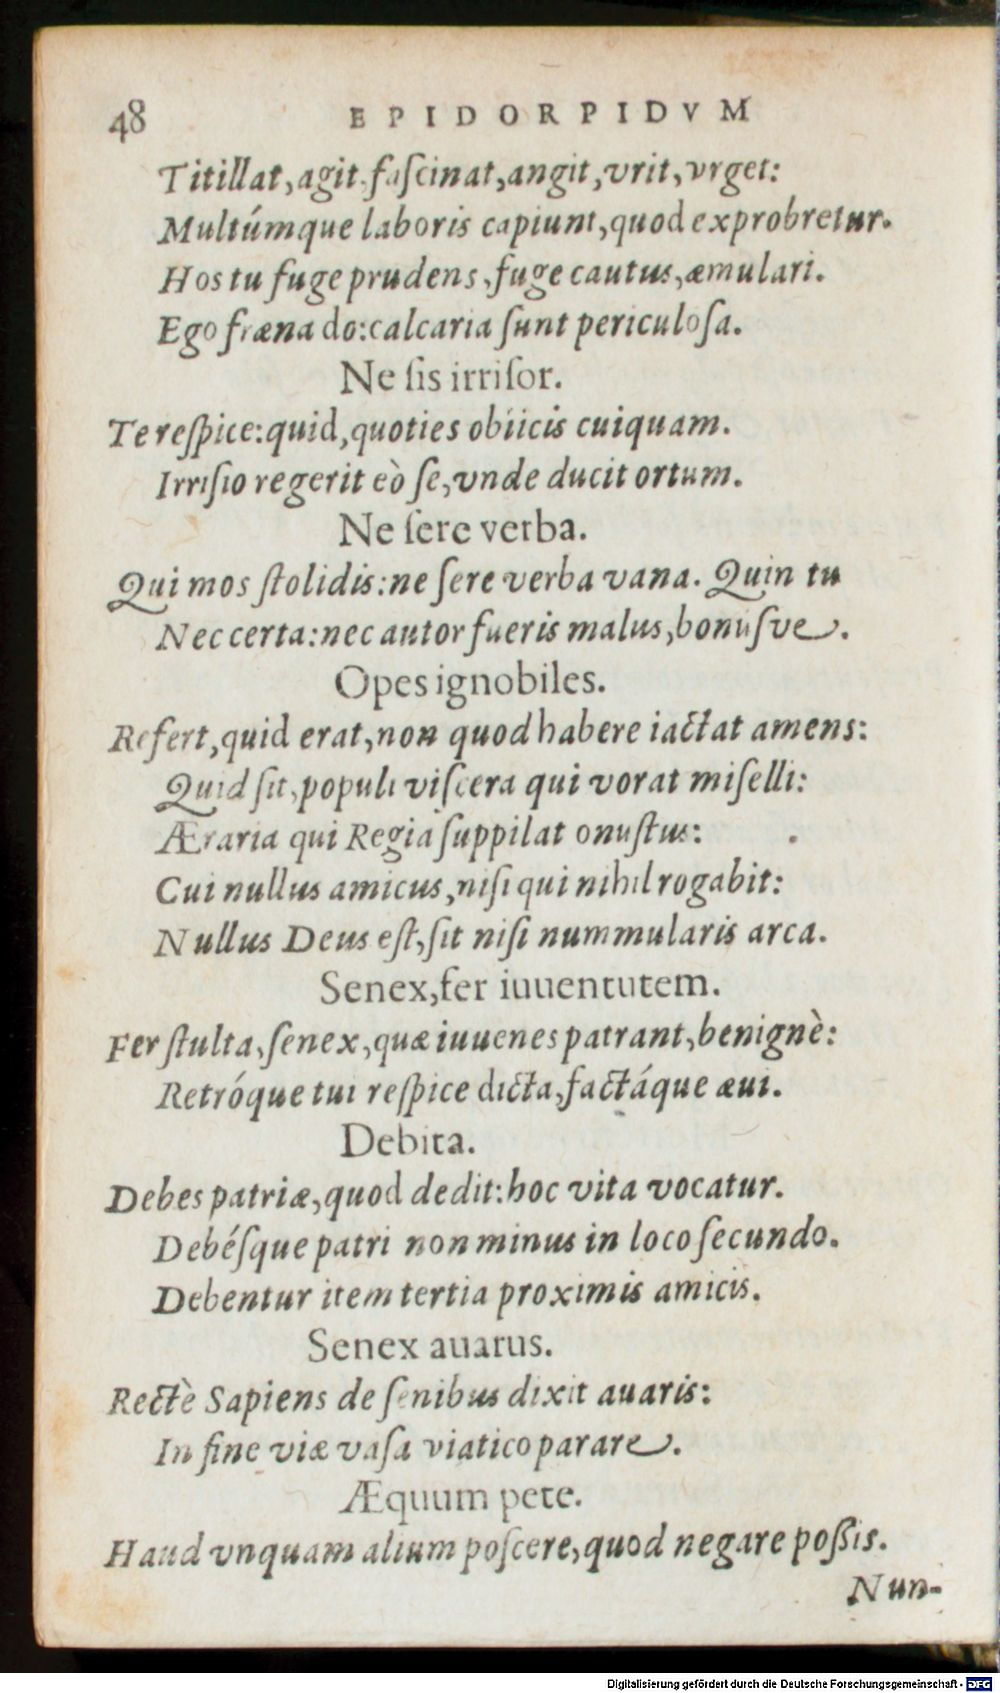 48 EPIDORPIDVM
Titillat, agit, faſcinat, angit, vrit, vrget:
Multúmque laboris capiunt, quod exprobretur.
Hos tu fuge prudens, fuge cautus, æmulari.
Ego fræna do: calcaria ſunt periculoſa.
Ne ſis irriſor.
Te reſpice: quid, quoties obiicis cuiquam.
Irriſio regerit eò ſe, vnde ducit ortum.
Ne ſere verba.
Qui mos ſtolidis: ne ſere verba vana. Quin tu
Nec certa: nec autor fueris malus, bonuſve.
Opes ignobiles.
Refert, quid erat, non quod habere iactat amens:
Quid ſit, populi viſcera qui vorat miſelli:
Æraria qui Regia ſuppilat onuſtus:
Cui nullus amicus, niſi qui nihil rogabit:
Nullus Deus eſt, ſit niſi nummularis arca.
Senex, fer iuuentutem.
Fer ſtulta, ſenex, quæ iuuenes patrant, benignè:
Retróque tui reſpice dicta, factáque æui.
Debita.
Debes patriæ, quod dedit: hoc vita vocatur.
Debéſque patri non minus in loco ſecundo.
Debentur item tertia proximis amicis.
Senex auarus.
Rectè Sapiens de ſenibus dixit auaris:
In fine viæ vaſa viatico parare.
Æquum pete.
Haud vnquam alium poſcere, quod negare poſſis.
Nun-
Digitalisierung gefördert durch die Deutsche Forschungsgemeinschaft - DFG